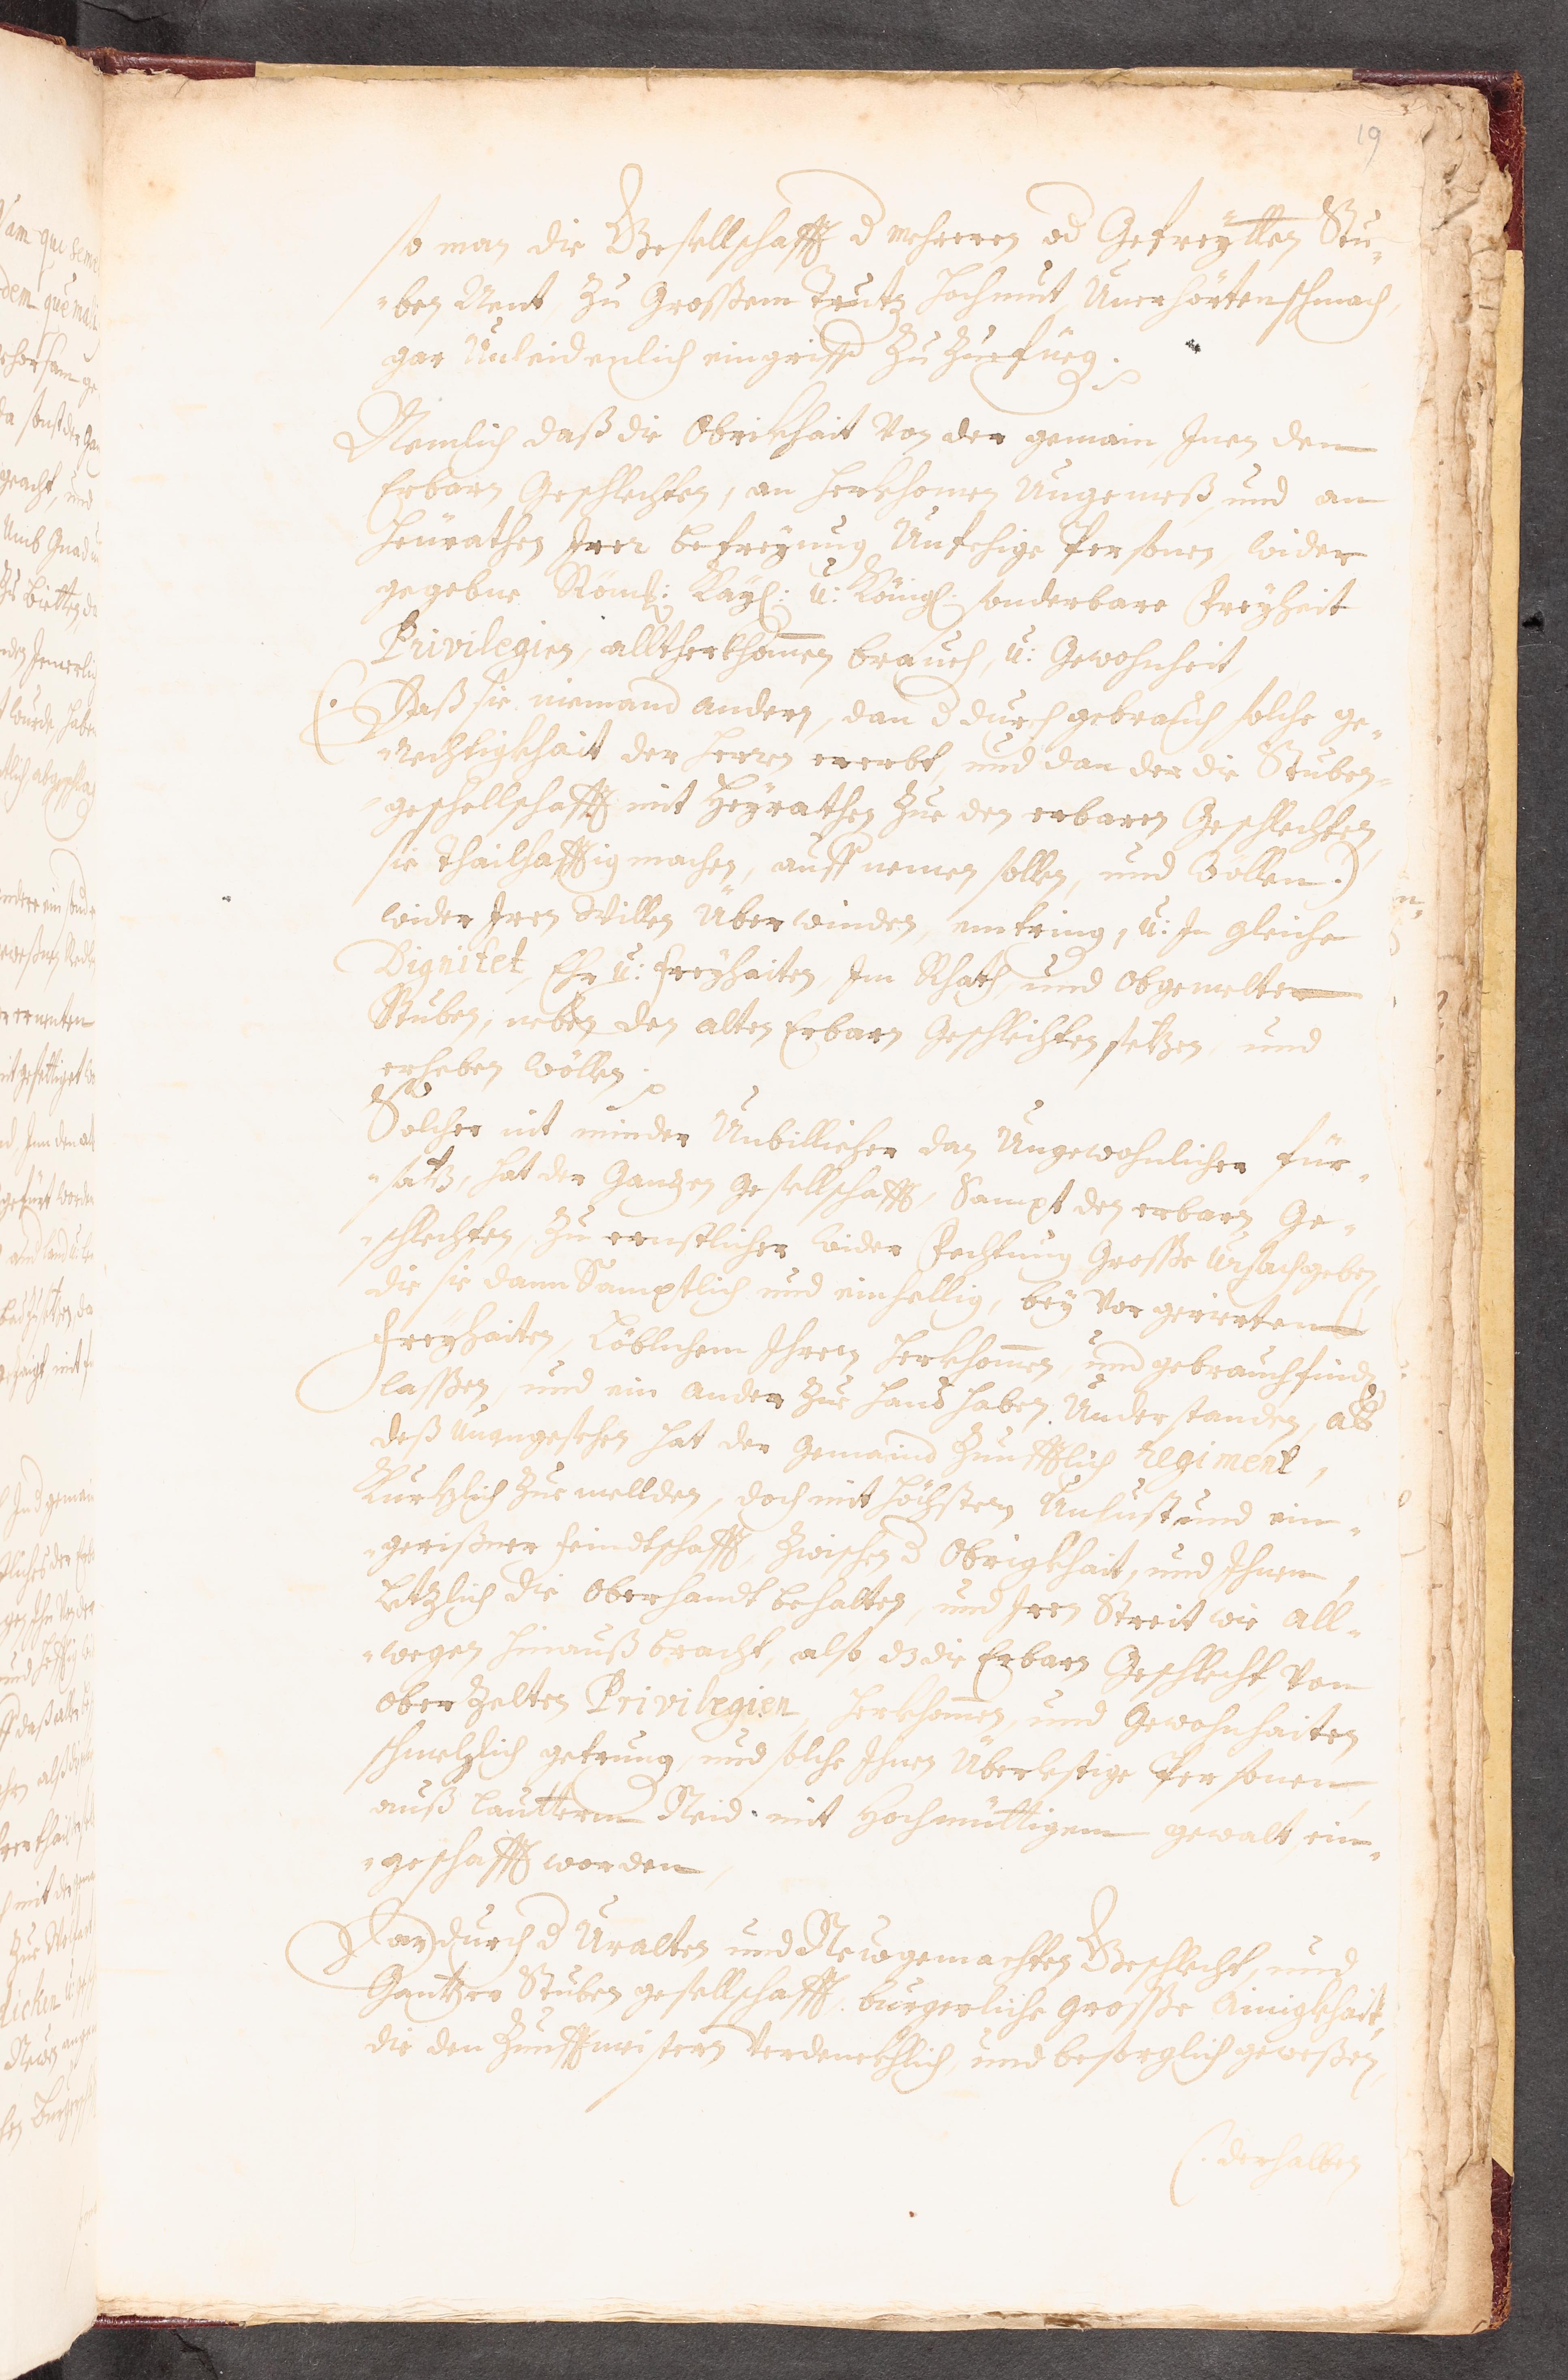 19
so man die Gesellschafft d mehreren od Gefreÿtten Stu„
„ben Nent, Zu Grossem Trutz Hochmut, Unerhörten schmach,
gar Unleidenlich eingriffd Zu Zuefüeg.
Nemlich daß die Obrikhait Von der gemain, Inen dem
Erbarn Geschlechten, an herkhomen Ungemeß, und an
Heürathen Irer befreyung Unfehige Personen, wider
gegebne Röm: Kaÿ: u: Königl: sonderbare Freÿheit
Privilegien, alltherkhom̄en brauch, u: Gewohnheit,
(. Daß sie niemand andern, dan d durch gebrauch solche ge„
„rechtigkhait der herren ererbt, und dan der die Stuben„
„geschellschafft mit Heÿrathen Zue den erbaren Geschlechten,
sie thailhafftig machen, auff nemen sollen, und wöllen .)
wider Iren Willen Überwinden, eintring, u: In gleiche
Dignitet, Ehr u: Freÿhaiten, Im Rhath, und obgemelter
Stuben, neben den alten Erbarn Geschlechten setzen, und
erheben wöllen.
Solcher nit minder Unbillicher dan Ungewohnlicher für„
„satz, hat der Gantzen gesellschafft, Sampt den erbarn Ge„
„schlechten, Zu ernstlicher wider Fechtung Grosse ursach geben,
die sie dann Samptlich und einhellig, beÿ Vor gerierten
Freÿhaiten, Löblichem Ihrem herkhom̄en, und gebrauch finden
lassen, und ein ander Zue hand haben Understanden, alß
deß unangesehen hat der gemaind Zunfftlich regiment,
Kurtzlich Zue mellden, doch mit höchstem Unlust und ein„
„gerißner feindtschafft, Zwischen d Obrigkhait, und Ihnen,
Letzlich die Oberhandt behalten, und Iren Streit wie all„
„wegen hinauß bracht, also dz die Erbarn Geschlecht, Von
ober Zelten Privilegien, herkhom̄en, und Gewohnhaiten
schmelzlich getrung, und solche Ihnen Überlestige Personen,
auß lautterm Neid mit Hochmüttigem gewalt, ein„
„geschafft worden,
Dardurch d Uralten und Newgemachten Geschlecht, und
Gantzer Stuben gesellschafft, burgerliche grosse Ainigkhait,
die den Zunfftmeistern Verdenckhlich, und besorglich gewesen,
(. derhalben